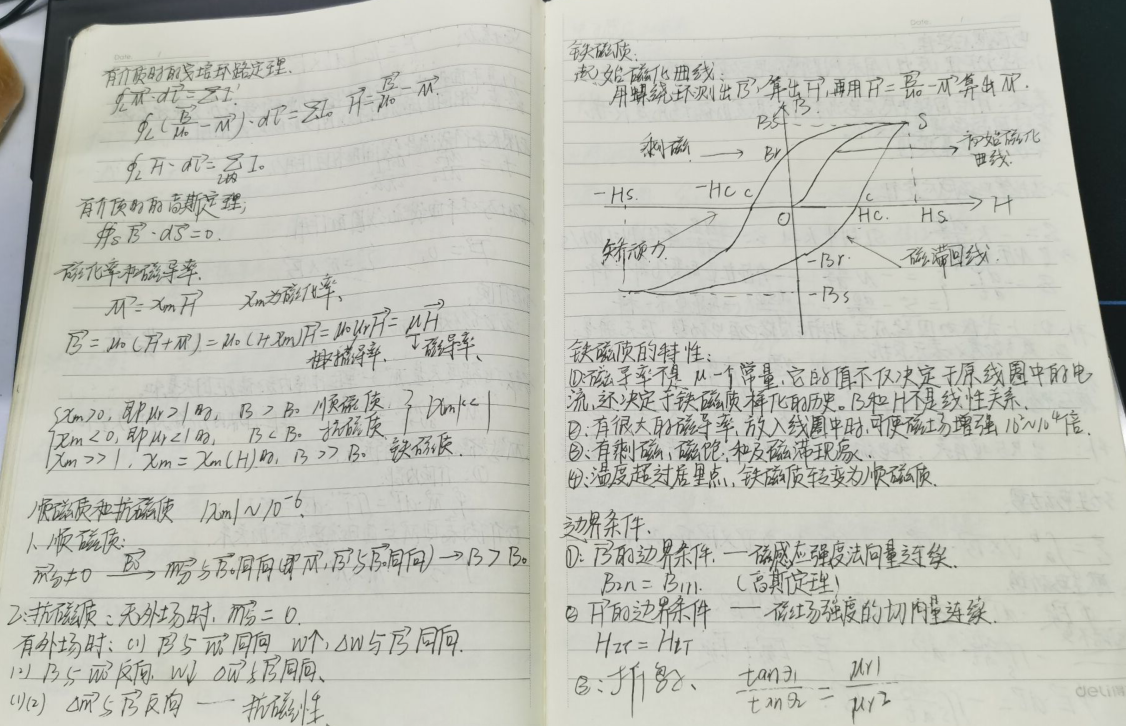 有介质时的安培环路定理.
∮L M⃗·dl⃗ = ΣI'
∮L (B⃗/μ0 - M⃗)·dl⃗ = ΣI0  H⃗ = B⃗/μ0 - M⃗.
∮L H⃗·dl⃗ = Σ I0
有介质时的高斯定理;
∯S B⃗·dS⃗ = 0.
磁化率和磁导率.
M⃗ = χm H⃗  χm为磁化率、
B⃗ = μ0(H⃗+M⃗) = μ0(1+χm)H⃗ = μ0μrH⃗ = μH⃗
相对磁导率. ↓磁导率、
{χm>0, 即μr>1时, B > B0 顺磁质. } |χm|<<1
χm<0, 即μr<1时, B<B0 抗磁质
χm>>1, χm = χm(H)时, B >> B0 铁磁质.
顺磁质和抗磁质 |χm| ~ 10⁻⁶.
1、顺磁质:
m⃗≠0 —B⃗0→ m⃗与B⃗0同向(即M⃗, B⃗'与B⃗0同向) → B > B0
2:抗磁质:无外场时, m⃗ = 0.
有外场时: (1) B⃗与w⃗同向 w↑, Δw⃗与B⃗同向.
(2) B⃗与w⃗反向. w↓ Δw⃗与B⃗同向、
(1)(2) Δm⃗与B⃗反向 — 抗磁性、
铁磁质.
起始磁化曲线:
用螺绕环测出B⃗, 算出H⃗, 再用H⃗ = B⃗/μ0 - M⃗算出M⃗.
B
Bs
S
剩磁 →
Br
→ 初始磁化曲线.
-Hs.
-Hc c
O
c
Hc.
Hs
H
矫顽力
-Br
磁滞回线.
-Bs
铁磁质的特性:
①:磁导率不是μ一个常量, 它的值不仅决定于原线圈中的电
流, 还决定于铁磁质样化的历史。B和H不是线性关系.
②:有很大的磁导率. 放入线圈中时, 可使磁场增强10²~10⁴倍.
③:有剩磁、磁饱、和及磁滞现象
④:温度超过居里点, 铁磁质转变为顺磁质.
边界条件.
①: B⃗的边界条件. — 磁感应强度法向量连续.
B2n = B1n. (高斯定理)
② H⃗的边界条件 — 磁场强度的切向量连续.
H2τ = H1τ
③:折射、 tanθ1/tanθ2 = μr1/μr2
deli